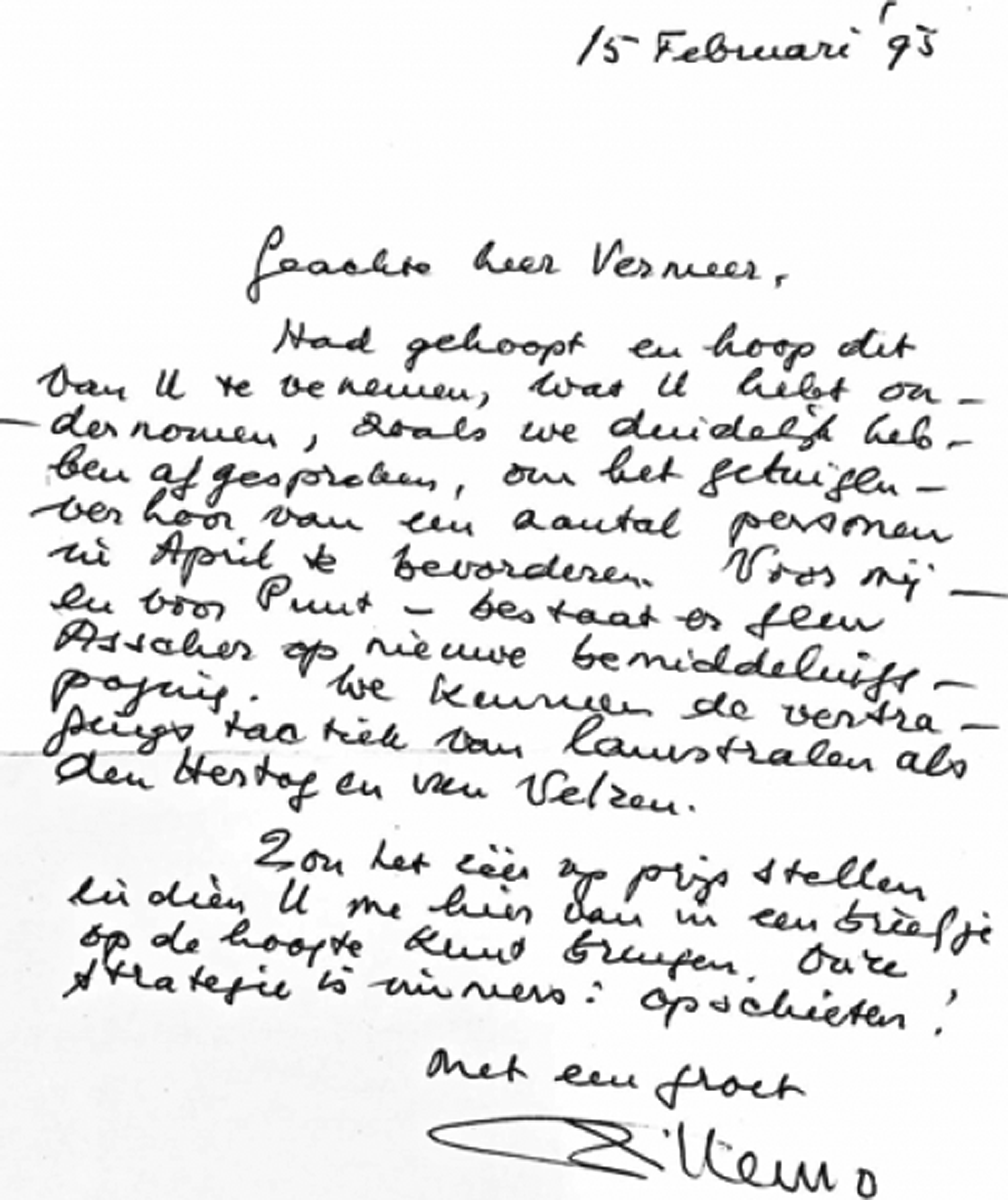 15 Februari '93
Geachte heer Vermeer,
Had gehoopt en hoop dit
van U te vernemen, wat U hebt on-
dernomen, zoals we duidelijk heb-
ben afgesproken, om het getuigen-
verhoor van een aantal personen
in April te bevorderen. Voor mij -
en voor Punt - bestaat er geen
Asscher op nieuwe bemiddelings-
poging. We kennen de vertra-
gings tactiek van lamstralen als
den Hertog en van Velzen.
Zou het zéér op prijs stellen
indien U me hier van in een briefje
op de hoogte kunt brengen. Onze
strategie is immers: opschieten!
Met een groet